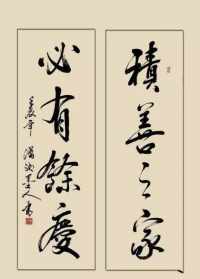 積善之家
必有餘慶